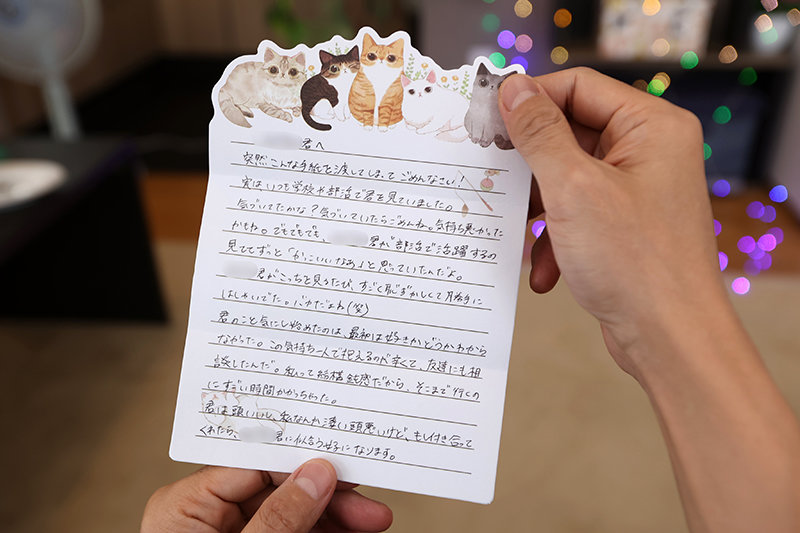 君へ
突然こんな手紙を渡してしまってごめんなさい!
実はいつも学校や部活で君を見ていました。
気づいてたかな?気づいていたらごめんね。気持ち悪かった
かもね。でもでもでも、君が部活で活躍するの
見ててずっと「かっこいいなあ」と思っていたんだよ。
君がこっちを見るたび、すごく恥ずかしくて勝手に
はしゃいでた。バカだよね(笑)
君のこと気にし始めたのは、最初は好きかどうかわから
なかった。この気持ち一人で抱えるのが辛くて、友達にも相
談したんだ。私って結構鈍感だから、そこまで行くの
にすごい時間かかっちゃった。
君は頭いいし、私なんか凄い頭悪いけど、もし付き合って
くれたら、君に似合う女子になります。